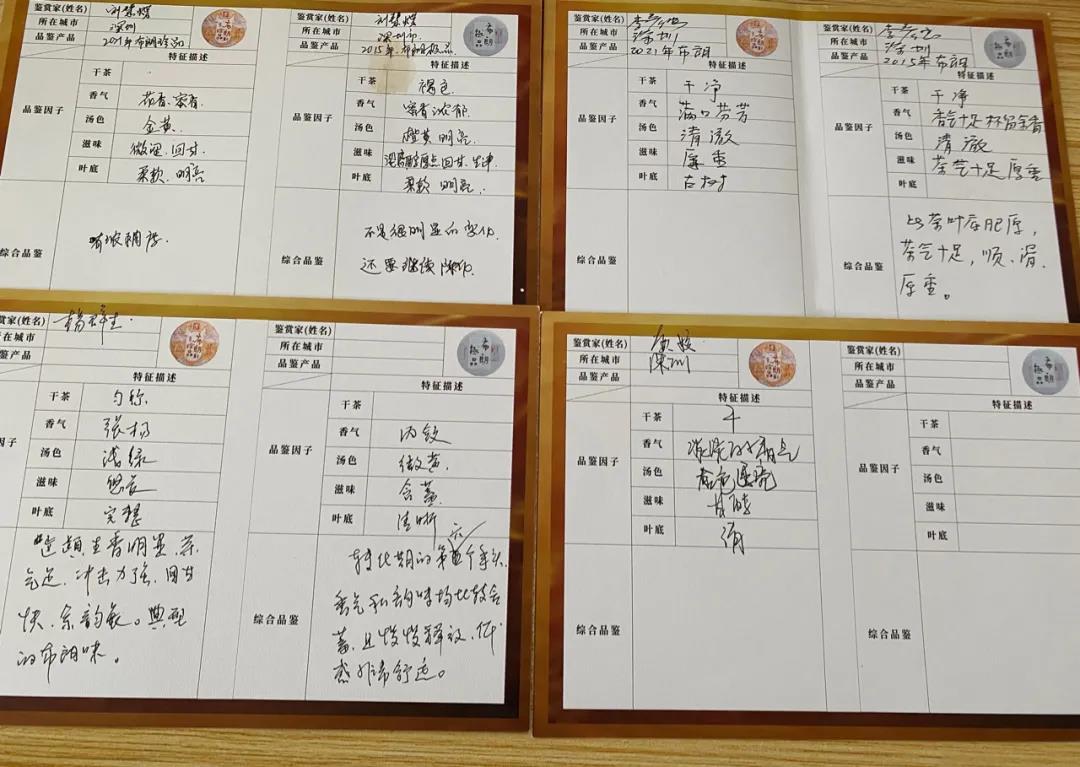 鉴赏家(姓名)
所在城市 深圳
品鉴产品 2021年布朗珍品
特征描述
品鉴因子
干茶
香气 花香、蜜香.
汤色 金黄.
滋味 微涩.回甘
叶底 柔软.明亮
综合品鉴
鉴赏家(姓名)
所在城市 深圳市
品鉴产品 2015年布朗极品
特征描述
品鉴因子
干茶 褐色
香气 蜜香浓郁
汤色 橙黄 明亮
滋味 回甘.生津
叶底 柔软 明亮.
综合品鉴 不是很明显的变化.
还要继续陈化.
鉴赏家(姓名)
所在城市 深圳
品鉴产品 2021年布朗
特征描述
品鉴因子
干茶 干净
香气 满口芬芳
汤色 清澈
滋味 厚重
叶底 古树
综合品鉴
鉴赏家(姓名)
所在城市 深圳
品鉴产品 2015年布朗
特征描述
品鉴因子
干茶 干净
香气 香气十足杯留蜜香
汤色 清澈
滋味 茶气十足厚重
叶底
综合品鉴 茶叶底肥厚,
茶气十足,顺、滑.
厚重。
赏家(姓名) 杨
所在城市
品鉴产品
特征描述
因子
干茶 匀称
香气 张扬
汤色 浅绿
滋味
叶底 完整
香明显.茶
气足.冲击力强.回甘
快.余韵长。典型
的布朗味。
鉴赏家(姓名)
所在城市
品鉴产品
特征描述
品鉴因子
干茶
香气 内敛
汤色 微黄.
滋味 含蓄.
叶底 清晰
综合品鉴 转化期的第六个年头.
香气和韵味均比较含
蓄.且慢慢释放.体
感非常舒适。
鉴赏家(姓名)
所在城市 深圳
品鉴产品
特征描述
品鉴因子
干茶 干
香气
汤色
滋味 甘醇
叶底
综合品鉴
鉴赏家(姓名)
所在城市
品鉴产品
特征描述
品鉴因子
干茶
香气
汤色
滋味
叶底
综合品鉴